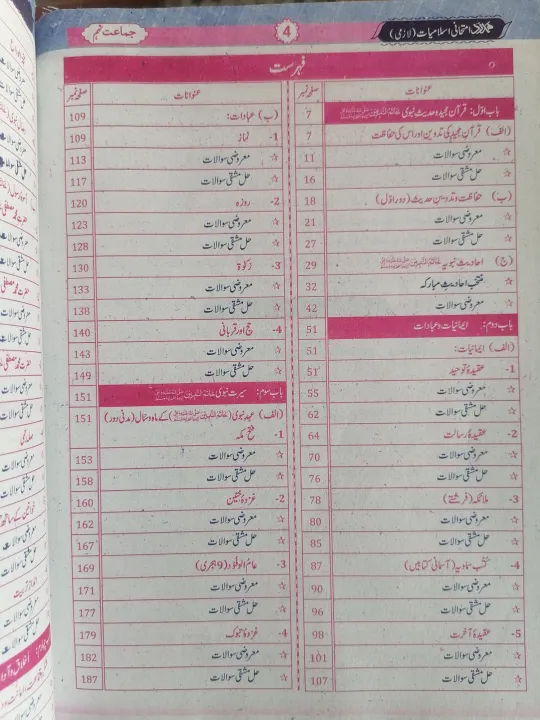 امتحانی اسلامیات (لازمی)
4
جماعت نہم
فہرست
عنوانات صفحہ نمبر
باب اوّل: قرآن مجید و حدیث نبوی 7
(الف) قرآن مجید کی تدوین اور اس کی حفاظت 7
☆ معروضی سوالات 11
☆ حل مشقی سوالات 16
(ب) حفاظت و تدوین حدیث (دور اوّل) 18
☆ معروضی سوالات 21
☆ حل مشقی سوالات 27
(ج) احادیث نبویہ 29
☆ منتخب احادیث مبارکہ 32
☆ معروضی سوالات 42
باب دوم: ایمانیات و عبادات 51
(الف) ایمانیات: 51
1- عقیدۂ توحید 51
☆ معروضی سوالات 55
☆ حل مشقی سوالات 62
2- عقیدۂ رسالت 64
☆ معروضی سوالات 70
☆ حل مشقی سوالات 76
3- ملائکہ (فرشتے) 78
☆ معروضی سوالات 80
☆ حل مشقی سوالات 85
4- کتب سماویہ (آسمانی کتابیں) 87
☆ معروضی سوالات 90
☆ حل مشقی سوالات 96
5- عقیدۂ آخرت 98
☆ معروضی سوالات 101
☆ حل مشقی سوالات 107
عنوانات صفحہ نمبر
(ب) عبادات: 109
1- نماز 109
☆ معروضی سوالات 113
☆ حل مشقی سوالات 117
2- روزہ 120
☆ معروضی سوالات 123
☆ حل مشقی سوالات 128
3- زکوٰۃ 130
☆ معروضی سوالات 133
☆ حل مشقی سوالات 138
4- حج اور قربانی 140
☆ معروضی سوالات 143
☆ حل مشقی سوالات 149
باب سوم: سیرت نبوی 151
(الف) عہد نبوی کے ماہ و سال (مدنی دور) 151
1- فتح مکہ
☆ معروضی سوالات 153
☆ حل مشقی سوالات 158
2- غزوۂ حنین 160
☆ معروضی سوالات 162
☆ حل مشقی سوالات 167
3- عام الوفود (9 ہجری) 169
☆ معروضی سوالات 171
☆ حل مشقی سوالات 177
4- غزوۂ تبوک 179
☆ معروضی سوالات 182
☆ حل مشقی سوالات 187